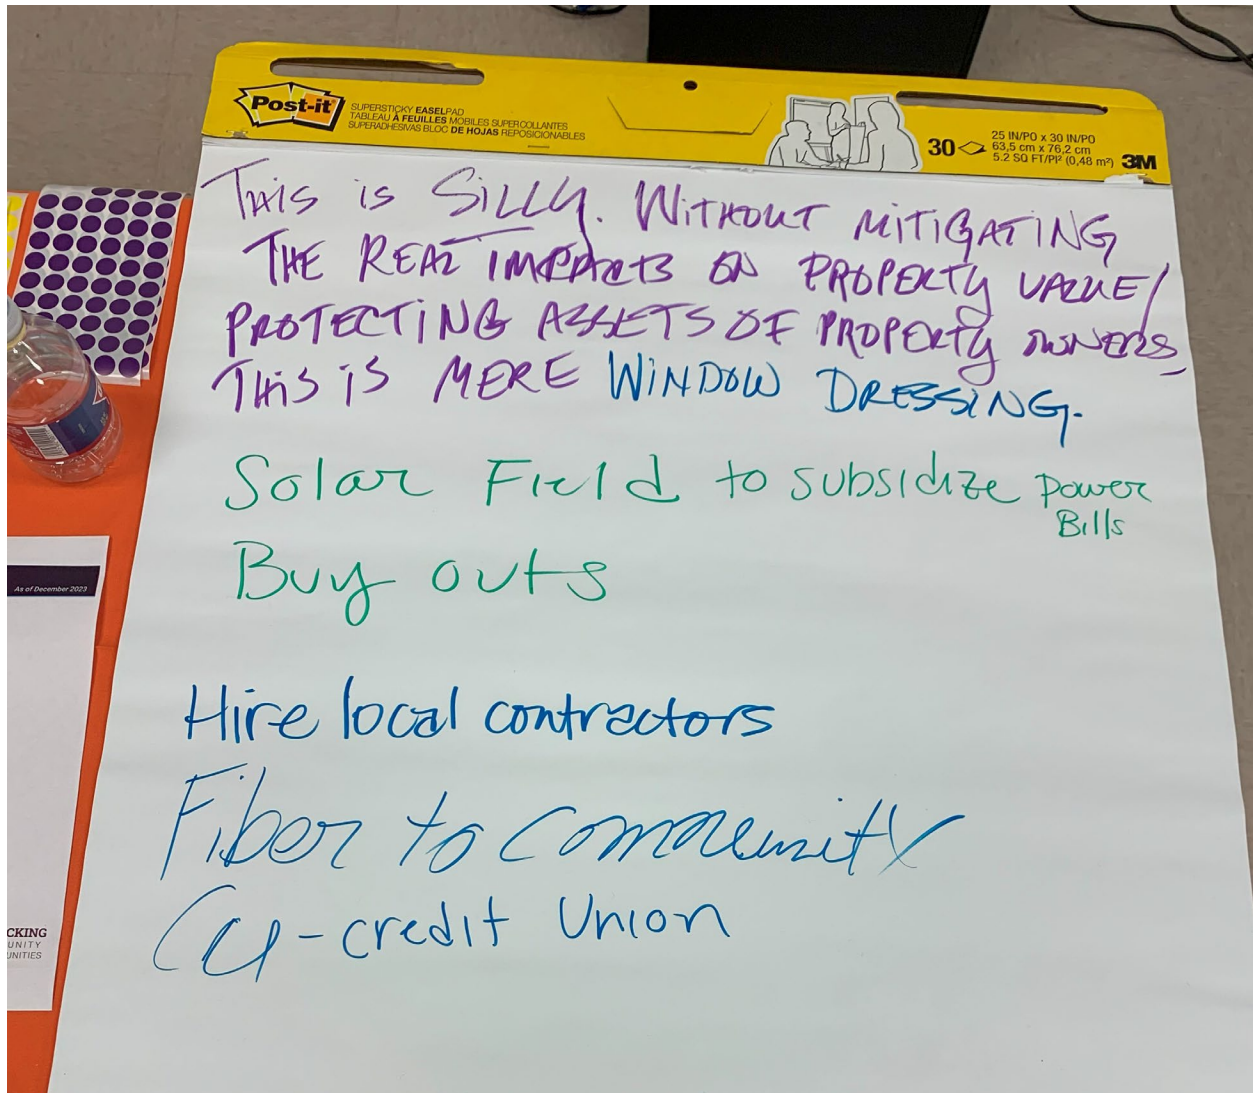 Post-it
SUPERSTICKY EASELPAD
TABLEAU À FEUILLES MOBILES SUPERCOLLANTES
SUPERADHESIVAS BLOC DE HOJAS REPOSICIONABLES
30
25 IN/PO x 30 IN/PO
63,5 cm x 76,2 cm
5.2 SQ FT/PI² (0,48 m²)
3M
THIS is SILLY. WITHOUT MITIGATING
THE REAL IMPACTS ON PROPERTY VALUE/
PROTECTING ASSETS OF PROPERTY OWNERS,
THIS IS MERE WINDOW DRESSING.
Solar Field to subsidize power
Bills
Buy outs
Hire local contractors
Fiber to community
- credit Union
As of December 2023
CKING
UNITY
UNITIES